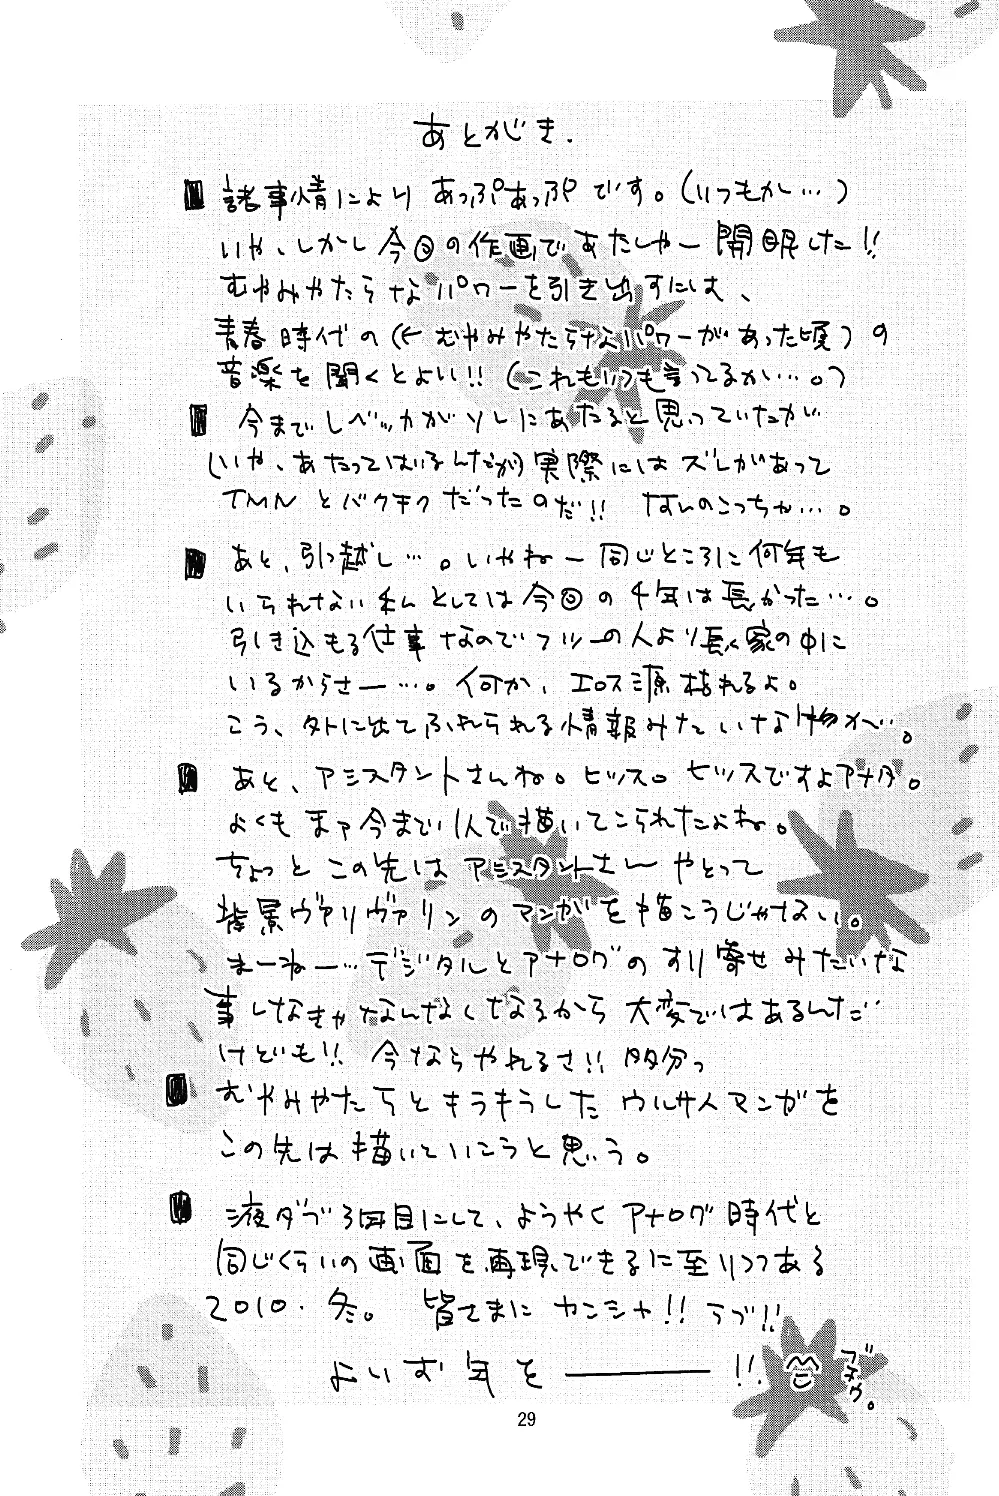 あとがき.
諸事情により あっぷあっぷです。(いつもか…)
いや、しかし今回の作画であたしゃー開眼した!!
むやみやたらなパワーを引き出すには、
青春時代の(←むやみやたらなパワーがあった頃)の
音楽を聞くとよい!!(これもいつも言ってるか…。)
今までレベッカがソレにあたると思っていたが
(いや、あたってはいるんだが)実際にはズレがあって
TMNとバクチクだったのだ!! なんのこっちゃ…。
あと、引っ越し…。いやねー同じところに何年も
いられない私としては今回の4年は長かった…。
引き込もる仕事なのでフツーの人より長く家の中に
いるからさー…。何か、エロス源枯れるよ。
こう、外に出てふれられる情報みたいな物が…。
あと、アシスタントさんね。ヒッス。ヒッスですよアナタ。
よくもまァ今まで1人で描いてこられたよね。
ちょっとこの先はアシスタントさんやとって
背景ヴァリヴァリンのマンガを描こうじゃない。
まーねー…デジタルとアナログのすり寄せみたいな
事しなきゃなんなくなるから大変ではあるんだ
けども!! 今ならやれるさ!! 多分っ
むやみやたらとキラキラしたウルサイマンガを
この先は描いていこうと思う。
液タブ3回目にして、ようやくアナログ時代と
同じくらいの画面を再現できるに至りつつある
2010.冬。 皆さまにカンシャ!! ラブ!!
よいお年を――!!
ブチゥ。
29